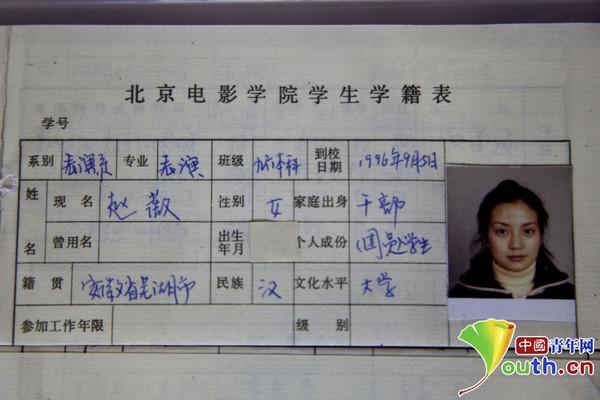 北京电影学院学生学籍表
学号
系别 表演系 专业 表演 班级 96本科 到校日期 1996年9月5日
姓名 现名 赵薇 性别 女 家庭出身 干部
曾用名 出生年月 个人成份 团员学生
籍贯 安徽省芜湖市 民族 汉 文化水平 大学
参加工作年限 级别
中國青年网
Youth.cn